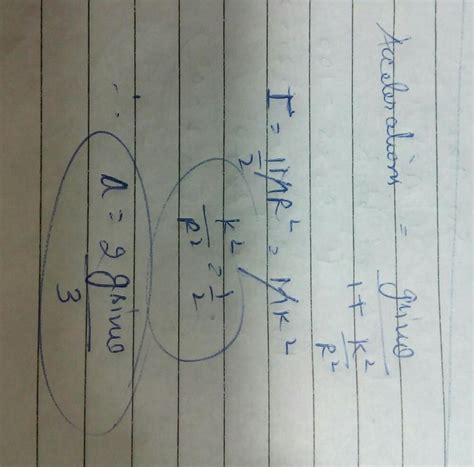 Acceleration = gsinθ / (1 + K²/R²)
I = 1/2 MR² = MK²
K²/R² = 1/2
∴ a = 2gsinθ / 3